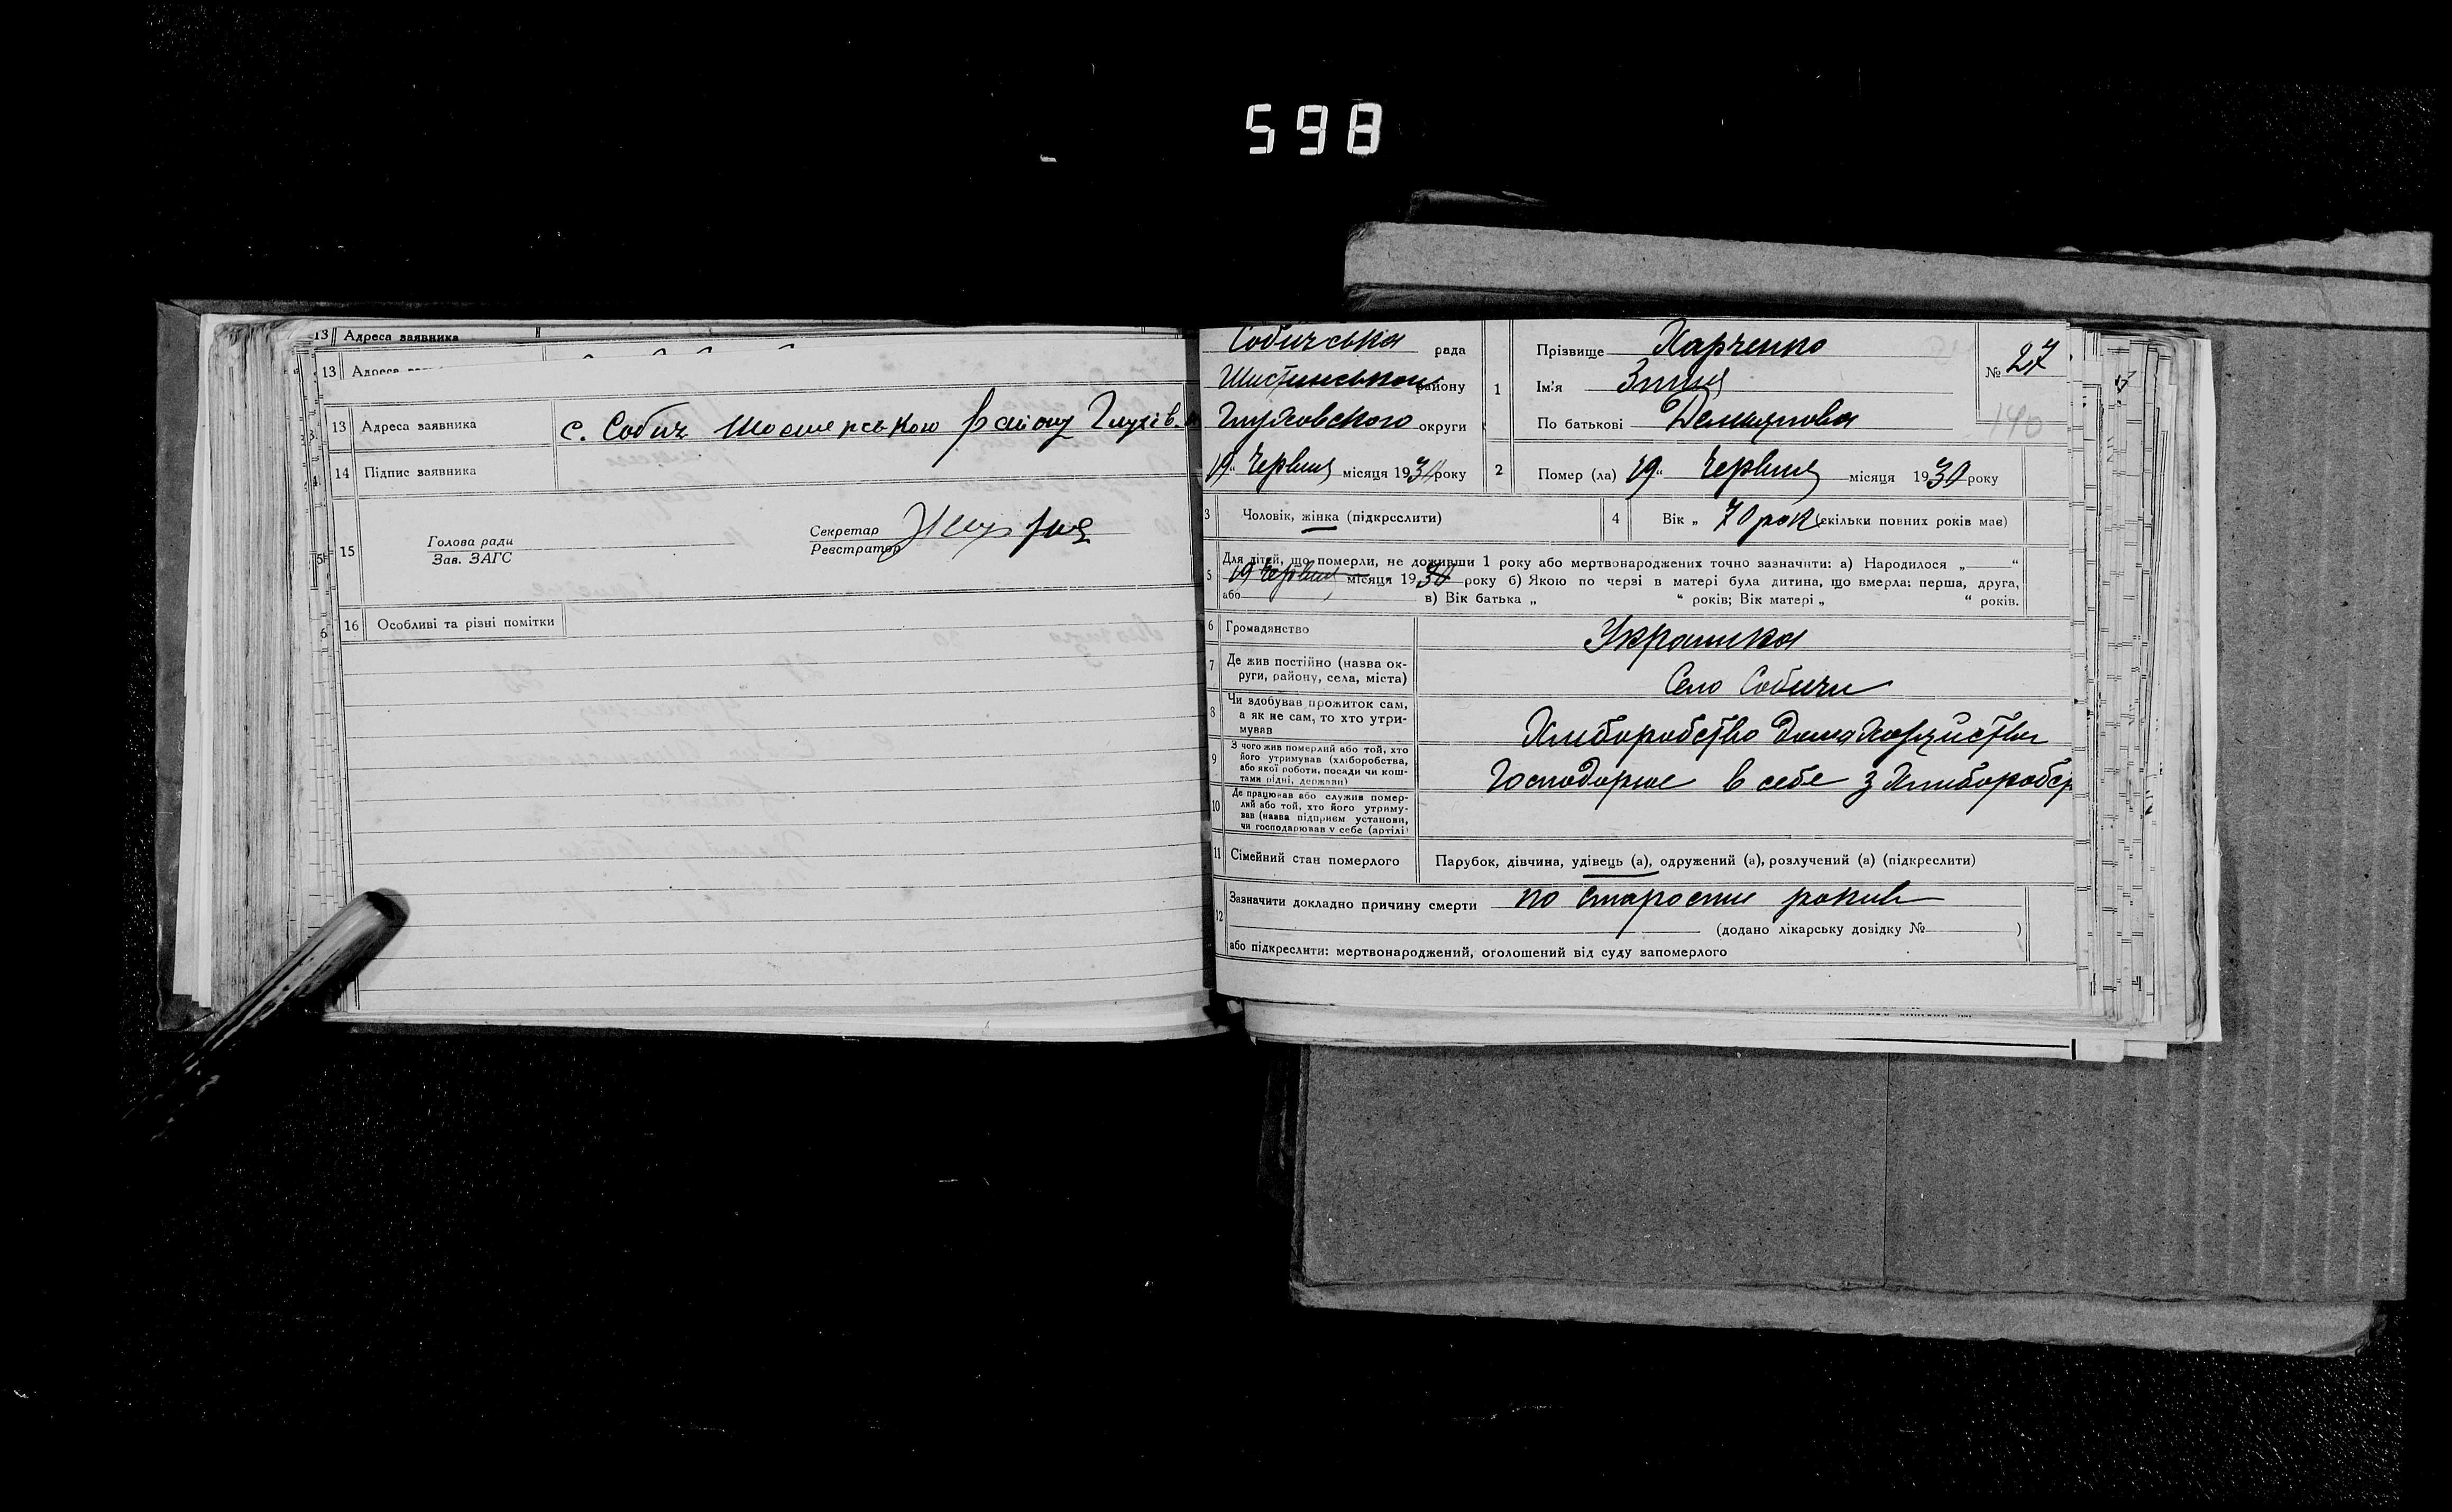 598
13 Адреса заявника
13
13 Адреса заявника с. Собич Шостенського району Глухів.
14 Підпис заявника
15 Голова ради
Зав. ЗАГС
Секретар
Реєстратор
16 Особливі та різні помітки
Собичська рада
району
Глуховского округи
19 " Червня місяця 1930 року
1 Прізвище Харченко
Ім'я
По батькові Демянова
№ 27
140
2 Помер (ла) 19 " Червня місяця 1930 року
3 Чоловік, жінка (підкреслити)
4 Вік „ 70 рок (скільки повних років має)
5 Для дітей, що померли, не доживши 1 року або мертвонароджених точно зазначити: а) Народилося „ “
19 Червня місяця 1930 року б) Якою по черзі в матері була дитина, що вмерла: перша, друга,
або в) Вік батька „ “ років; Вік матері „ “ років.
6 Громадянство Украинка
7 Де жив постійно (назва ок-
руги, району, села, міста) Село Собичи
8 Чи здобував прожиток сам,
а як не сам, то хто утри-
мував Хлиборобство
9 З чого жив померлий або той, хто
його утримував (хліборобства,
або якої роботи, посади чи кош-
тами рідні, держави) в себе з Хлиборобст
10 Де працював або служив помер-
лий або той, хто його утриму-
вав (назва підприєм установи,
чи господарював у себе (артілі)
11 Сімейний стан померлого Парубок, дівчина, удівець (а), одружений (а), розлучений (а) (підкреслити)
12 Зазначити докладно причину смерти по старости рокив
(додано лікарську довідку № )
або підкреслити: мертвонароджений, оголошений від суду запомерлого